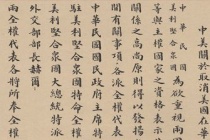 中美關於取消美國在
中華民國
美利堅合眾國為欲重視兩
等與主權國家之資格表示
關係之高尚原則得以發
間有關事項各派全權代
中華民國國民政府主席特
駐美利堅合眾國特命全權
美利堅合眾國大總統特派
外交部部長赫爾
兩全權代表各將所奉全